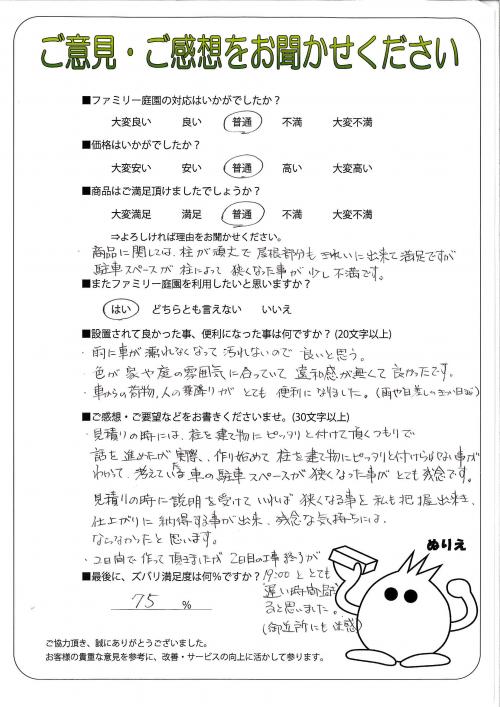 ご意見・ご感想をお聞かせください
■ファミリー庭園の対応はいかがでしたか？
大変良い 良い 普通 不満 大変不満
■価格はいかがでしたか？
大変安い 安い 普通 高い 大変高い
■商品はご満足頂けましたでしょうか？
大変満足 満足 普通 不満 大変不満
⇒よろしければ理由をお聞かせください。
・商品に関しては、柱が頑丈で屋根部分もきれいに出来て満足ですが
駐車スペースが柱によって狭くなった事が少し不満です。
■またファミリー庭園を利用したいと思いますか？
はい どちらとも言えない いいえ
■設置されて良かった事、便利になった事は何ですか？(20文字以上)
・雨に車が濡れなくなって汚れないので良いと思う。
・色が家や庭の雰囲気に合っていて違和感が無くて良かったです。
・車からの荷物、人の乗降りがとても便利になりました。(雨や日差しの
■ご感想・ご要望などをお書きくださいませ。(30文字以上)
・見積りの時には、柱を建て物にピッタリと付けて頂くつもりで
話を進めたが実際、作り始めて柱を建て物にピッタリと付けられない事が
わかって、考えていた車の駐車スペースが狭くなった事がとても残念です。
見積りの時に説明を受けていれば狭くなる事を私も把握出来き、
仕上がりに納得する事が出来、残念な気持ちには、
ならなかったと思います。
・2日間で作って頂きましたが2日目の工事終りが
19:00ととても
遅い時間
ると思いました。
(御近所にも迷惑)
ぬりえ
■最後に、ズバリ満足度は何％ですか？
75 ％
ご協力頂き、誠にありがとうございました。
お客様の貴重な意見を参考に、改善・サービスの向上に活かして参ります。